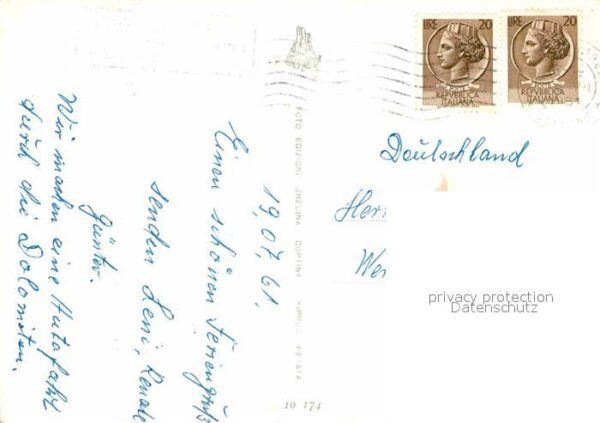 19.07.61.
Einen schönen Feriengruß
senden Leni, Renate
Günter.
Wir machen eine Autofahrt
durch die Dolomiten.
FOTO EDIZIONI GHEDINA CORTINA RIPROD. VIETATA
10 174
LIRE 20
REPVBBLICA
ITALIANA
LIRE 20
REPVBBLICA
ITALIANA
Deutschland
Her
We
privacy protection
Datenschutz